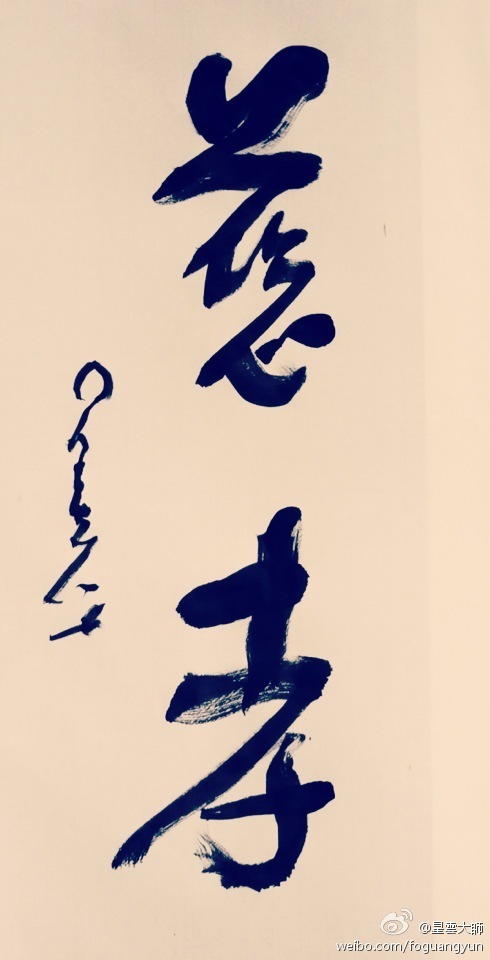 慈孝
星雲 八七
@星雲大師
weibo.com/foguangyun